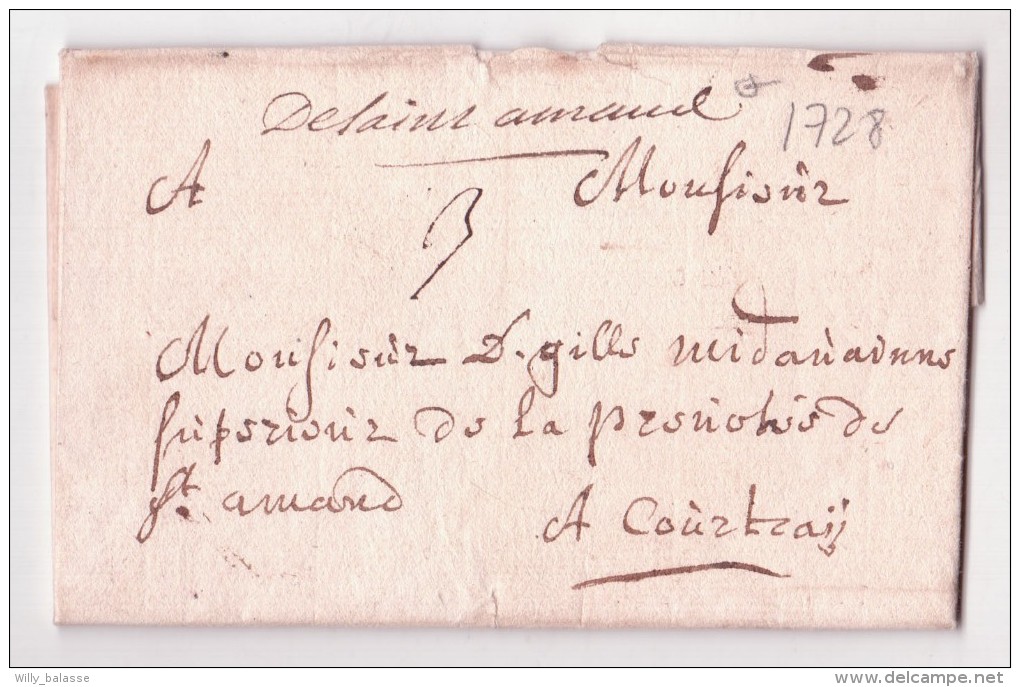 De saint amand
1728
A Monsieur
3
Monsieur D. gille midavainne
superieur de la prevotée de
st. amand
A Courtraij
Willy_balasse
delcampe.net